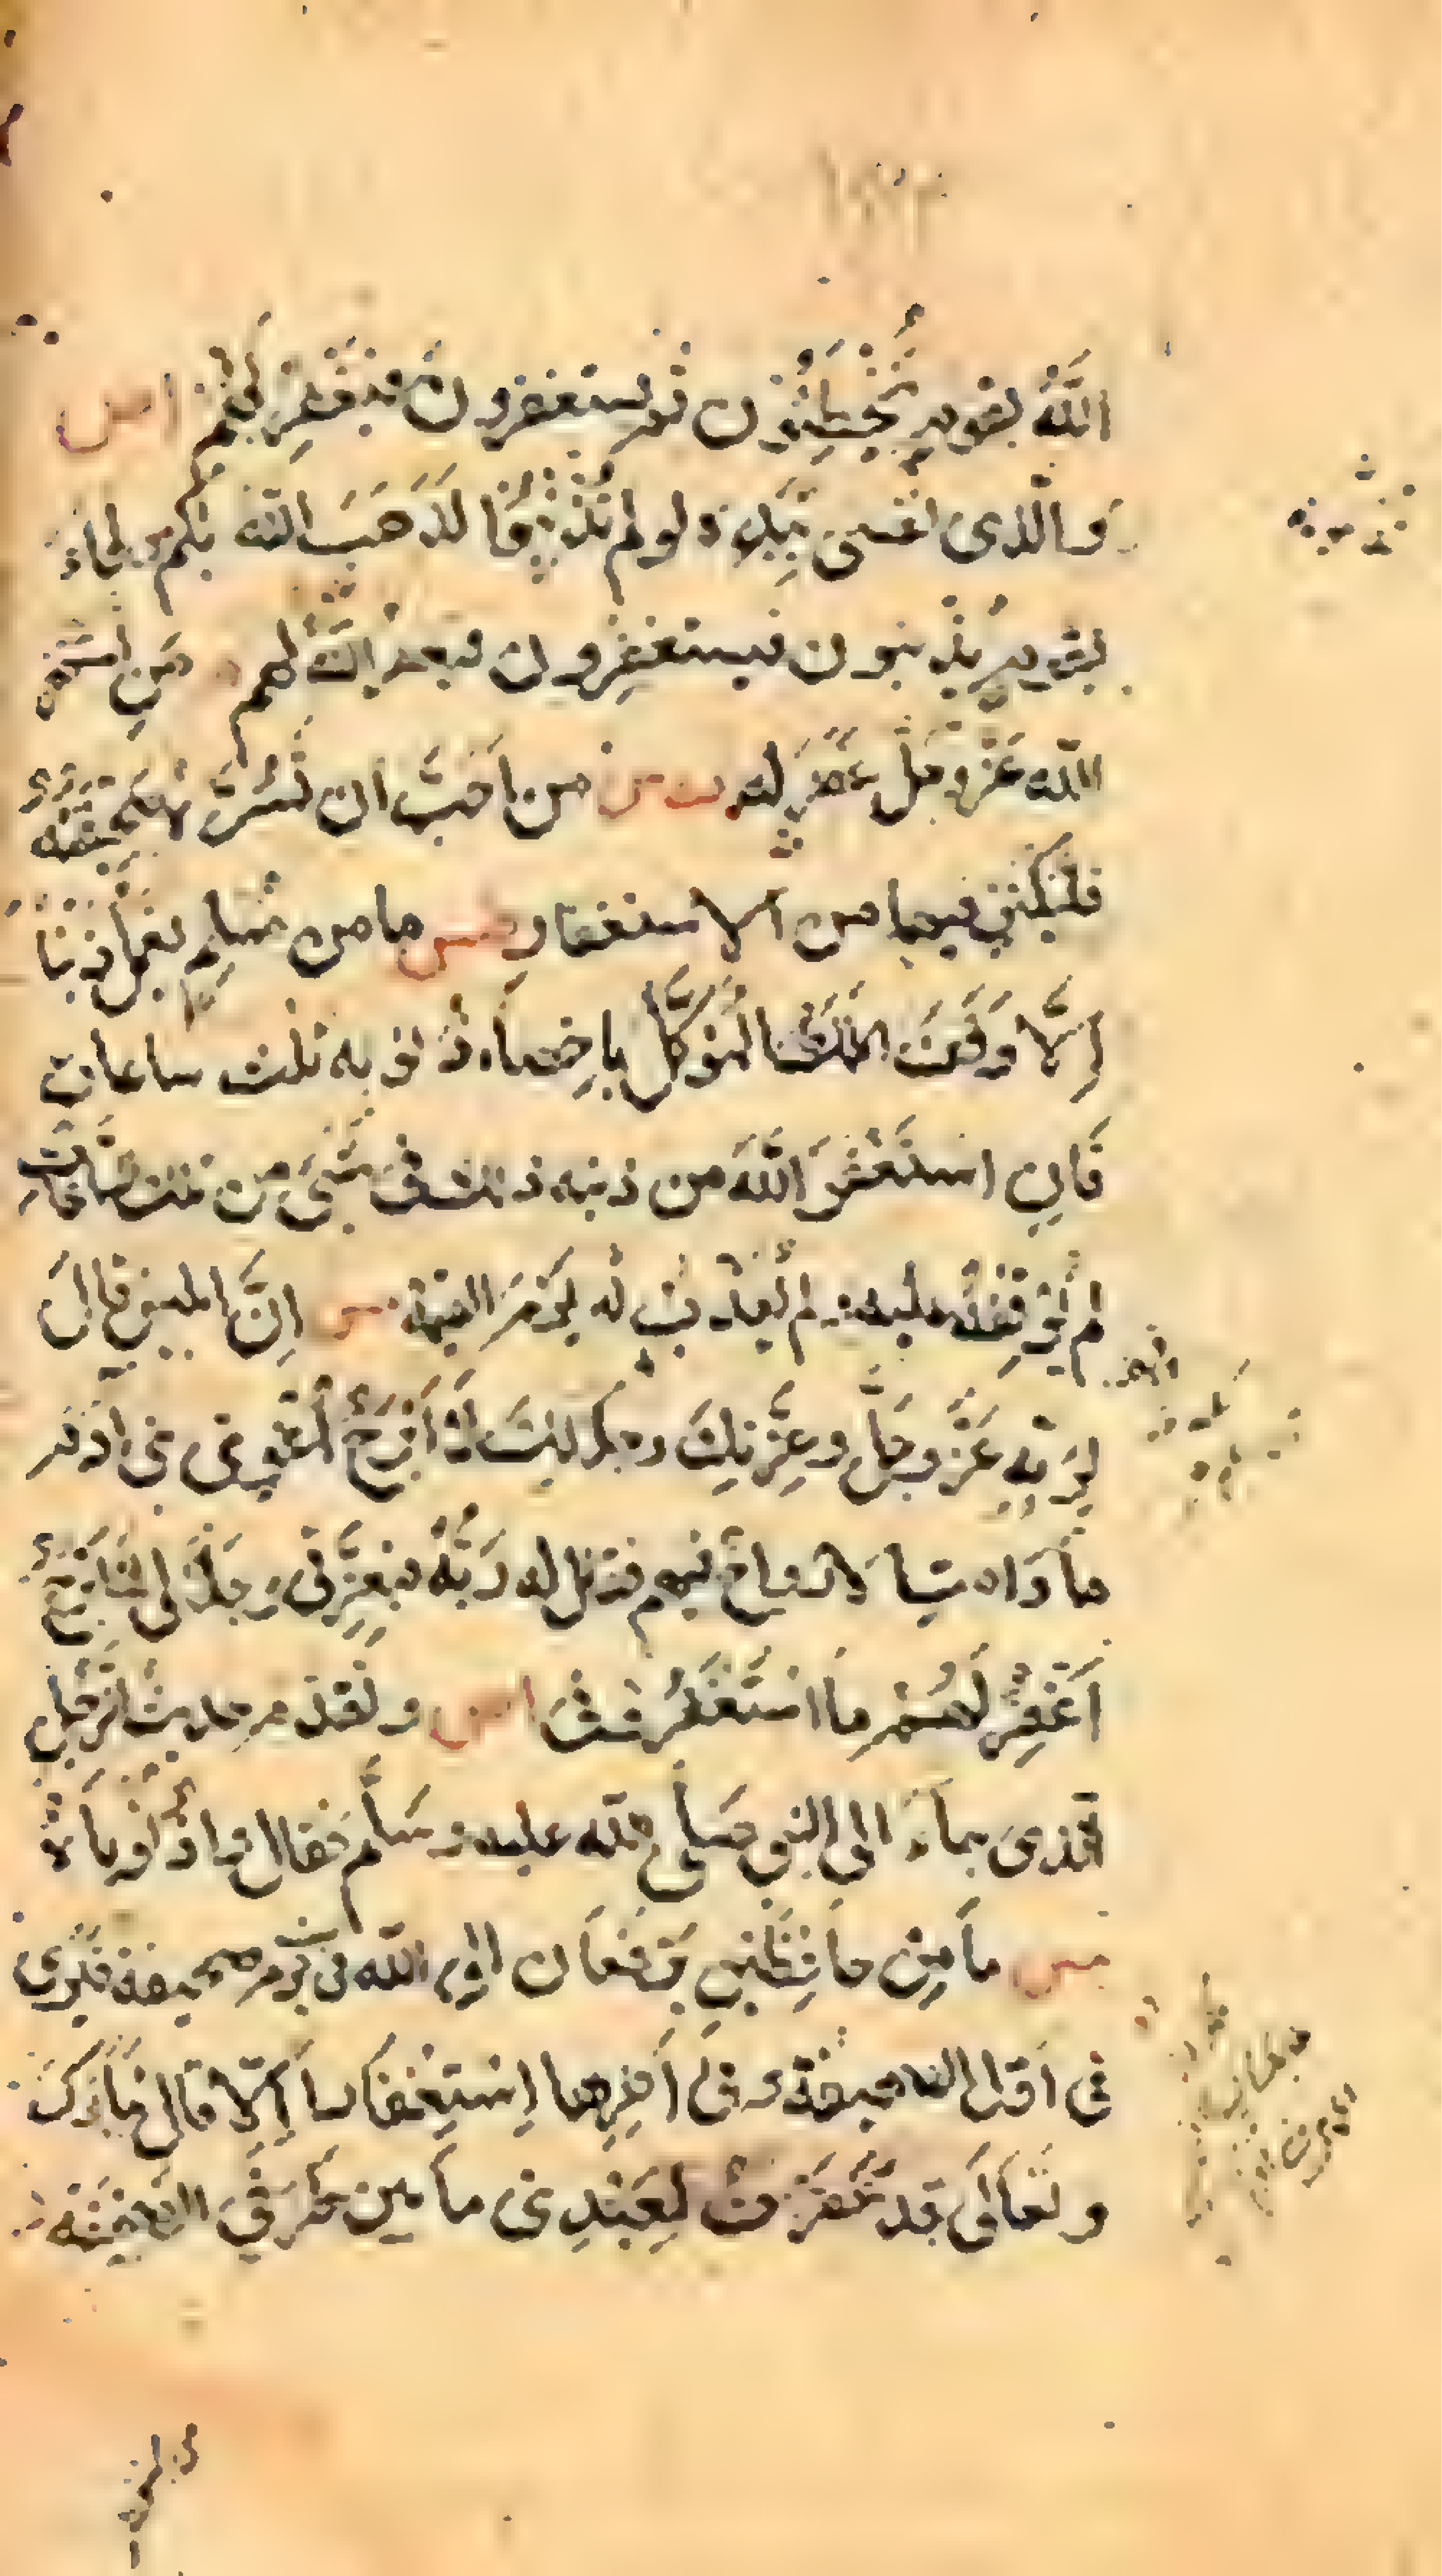 اللّٰهُ بقومٍ يُخْطِئُون ثم يستغفرون فيَغْفِرُ لَهُمْ اص
والذى نفسى بِيَدِه لو لم تُذْنِبُوا لَذَهَبَ اللّٰه بكم و لجاءَ
بقومٍ يُذنبون فيستغفِرون فيغفر اللّٰه لهم مَنِ استغفر
اللّٰه عَزَّ وجَلَّ غَفَرَ له ت س من اَحَبَّ ان تَسُرَّهُ صحيفتُه
فليُكثِر فيها من الاستغفار طس ما من مُسلِمٍ يعمل ذَنْبًا
اِلَّا وَقَفَ الملَكُ المُوَكَّلُ بِاِحصاءِ ذنوبه ثلث ساعات
فَاِنِ استَغْفَرَ اللّٰهَ من ذنبه ذلك فى شَىْءٍ مِن تلك السَّاعاتِ
لم يُوقِفْهُ عليه و لم يُعَذَّبْ به يَوْمَ القيٰمة مس اِنَّ ابليس قال
لِرَبِّه عَزَّ وجَلَّ وعِزَّتِكَ وجلالِكَ لَا اَبْرَحُ اُغْوِى بنى اٰدَم
ما دَامَت الارواحُ فيهم فقال له رَبُّهُ فبِعِزَّتى وجَلالى لَا اَبْرَحُ
اَغْفِرُ لَهُمْ ما اسْتَغْفَرُونى اص وتقدم حديث الرَّجُلِ
الَّذى جاءَ الى النبى صَلَّى اللّٰه عليه وسَلَّم فقال وا ذُنُوبَاهْ
مس ما مِن حافِظَيْنِ يَرْفَعَان الى اللّٰه فى يَوْمٍ صحيفة فيَرى
فى اوّل الصحيفة و فى اٰخِرِها اِسْتِغْفَارا اِلّا قال تَبَارَكَ
وتَعَالَى قد غَفَرْتُ لِعَبْدِى ما بين طَرَفَىِ الصحيفة